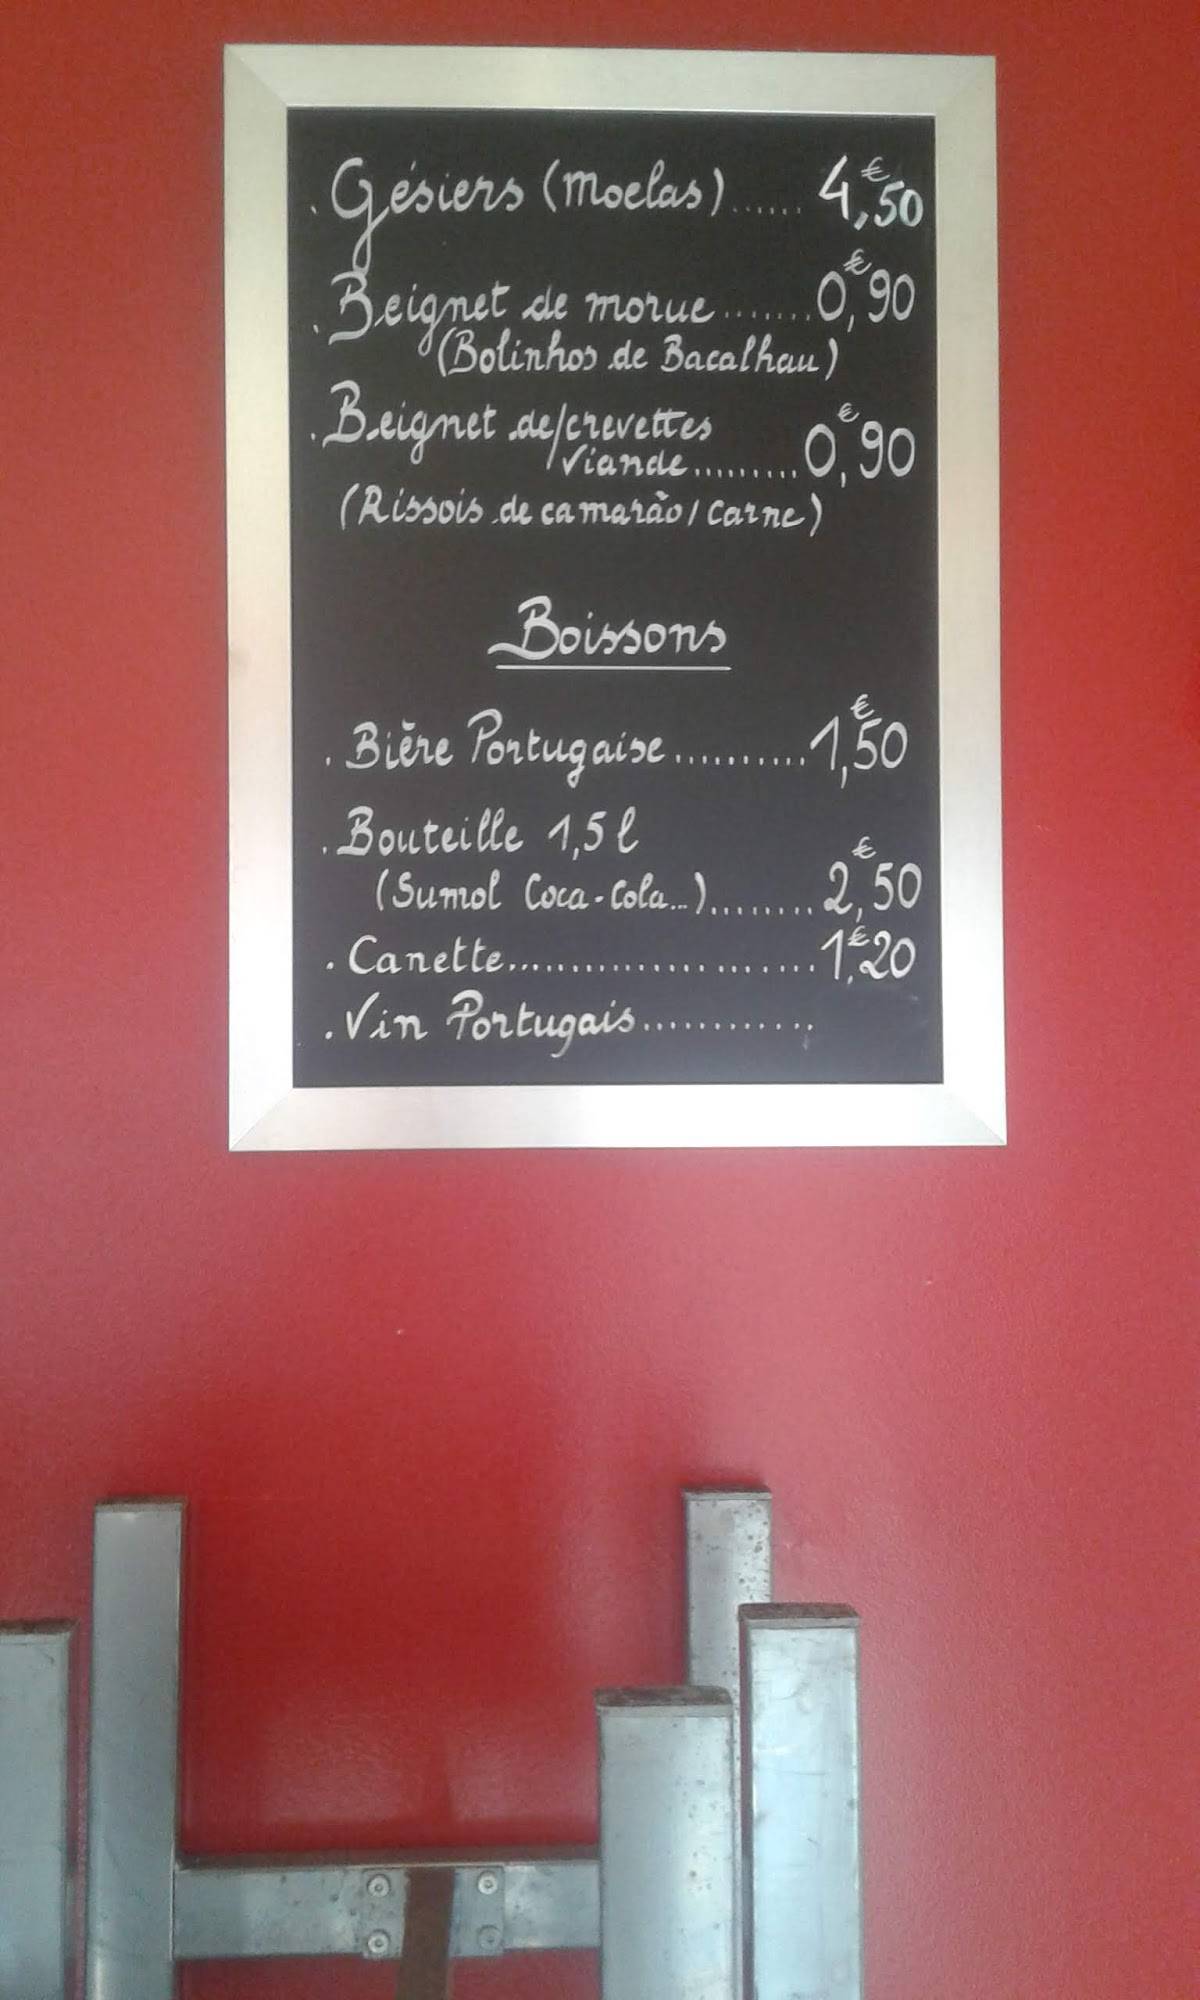 . Gésiers (Moelas)...... 4,€50
. Beignet de morue.......0,€90
(Bolinhos de Bacalhau)
. Beignet de/crevettes
viande.........0,€90
(Rissois de camarão/carne)
Boissons
. Bière Portugaise..........1,€50
. Bouteille 1,5 l
(Sumol Coca-Cola...)........ 2,€50
. Canette.......................1,€20
. Vin Portugais............